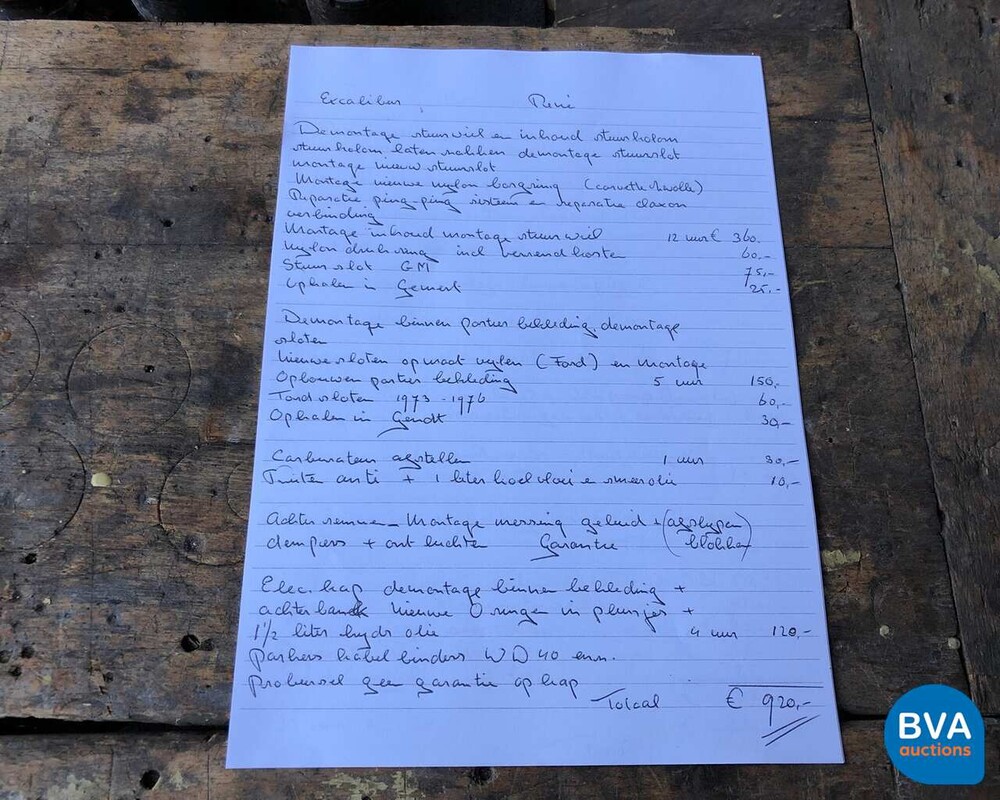 Excalibur René
Demontage stuurwiel en inhoud stuurkolom
stuurkolom laten zakken demontage stuurslot
montage nieuw stuurslot
Montage nieuwe nylon borgring (corvette Zwolle)
Reparatie ping-ping sisteem en reparatie claxon
verbinding
Montage inhoud montage stuurwiel 12 uur € 360.
nylon drukring incl verzendkosten 60,-
Stuurslot GM 75,-
Ophalen in Gemert 25,-
Demontage binnen portier bekleding, demontage
sloten
nieuwe sloten op maat vylen (Ford) en montage
Opbouwen portier bekleding 5 uur 150,-
Ford sloten 1973 - 1976 60,-
Ophalen in Gendt 30,-
Carburateur afstellen 1 uur 30,-
anti + 1 liter koelvloei e smeerolie 10,-
Achter remmen Montage messing geluid + (afslypen
dempers + ontluchten Garantie blokken)
Elec. kap demontage binnen bekleding +
achterbank nieuwe O ringen in plunjes +
1 1/2 liter hydr olie 4 uur 120,-
parkers kabelbinders WD 40 enz.
geen garantie op kap
Totaal € 920,-
BVA
auctions